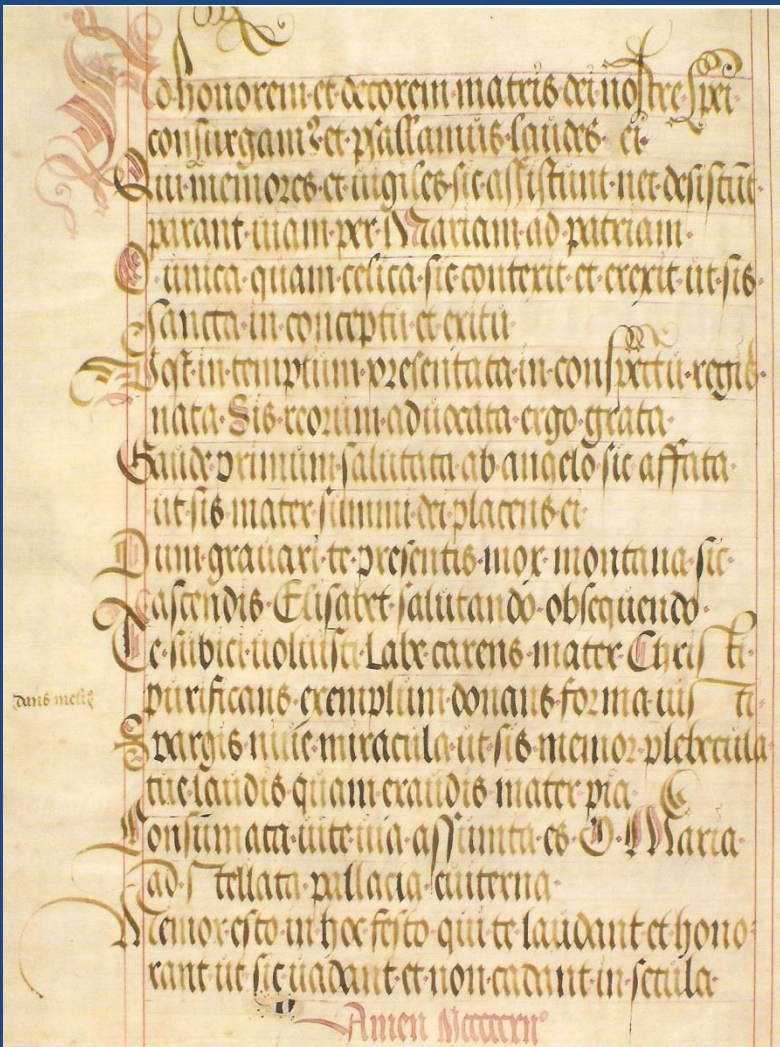 Ad honorem et decorem matris dei nostre spei
consurgamꝰ et psallamus laudes ei
Qui memores et uigiles sic assistunt nec desistūt
parant uiam per Mariam ad patriam
O unica quam celica sic contexit et erexit ut sis
sancta in conceptu et exitu
Post in templum presentata in conspectu regis
nata Sis reorum aduocata ergo grata
Gaude primum salutata ab angelo sic affata
ut sis mater summi dei placens ei
Dum grauari te presentis mox montana sic
ascendis Elisabet salutando obsequendo
Te subici uoluisti Labe carens mater Christi
purificans exemplum donans forma uisti
dans
Spargis niuē miracula ut sis memor plebecula
tue laudis quam exaudis mater pia
Consumata uite uia assumta es O Maria
ad stellata pallacia euiterna
Memor esto in hoc festo qui te laudant et hono
rant ut sic uadant et non cadant in secula
Amen